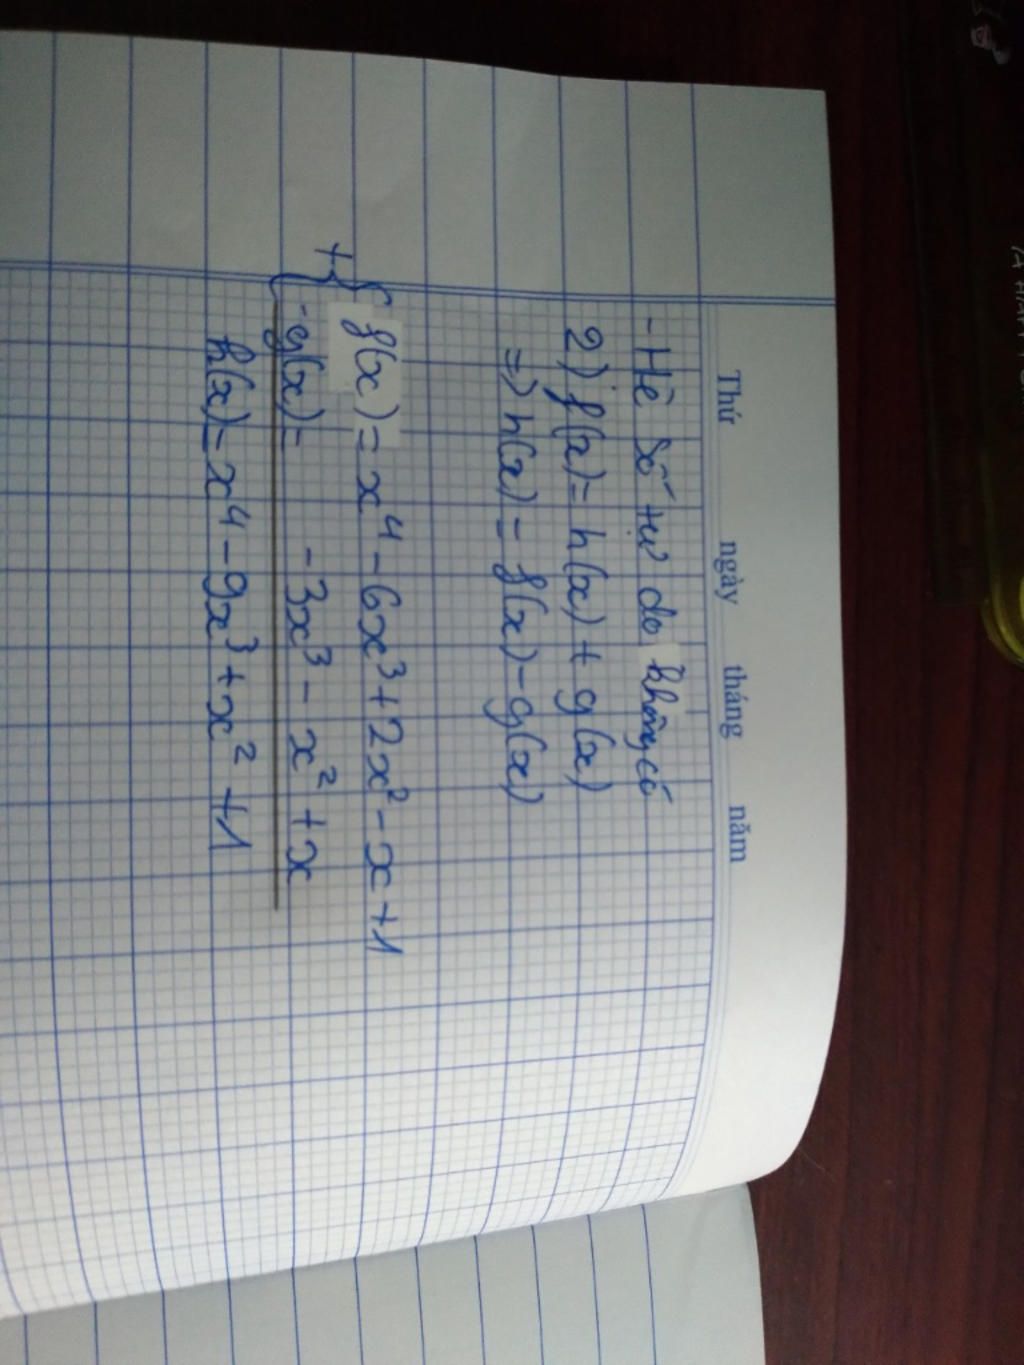 Thứ ngày tháng năm
- Hệ số tự do không có
2) f(x) = h(x) + g(x)
=> h(x) = f(x) - g(x)
+ { f(x) = x⁴ - 6x³ + 2x² - x + 1
-g(x) = - 3x³ - x² + x
h(x) = x⁴ - 9x³ + x² + 1